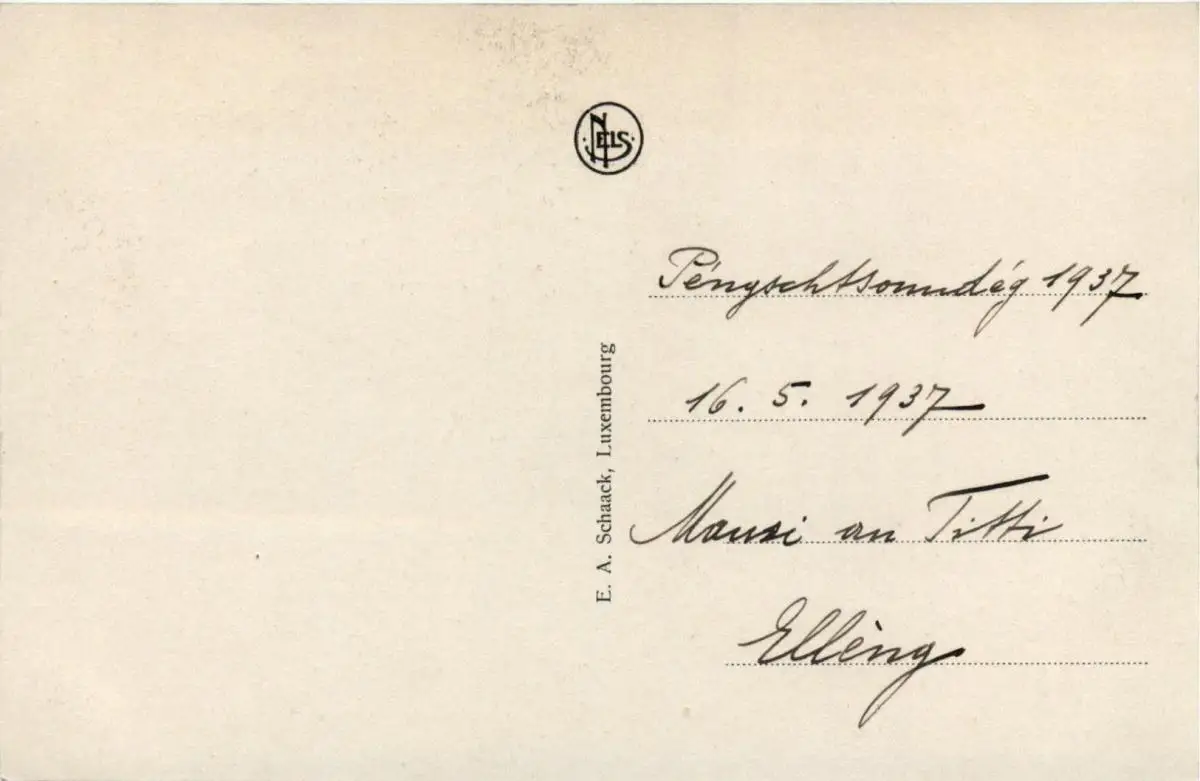 NELS
E. A. Schaack, Luxembourg
Péngschtsonndég 1937
16. 5. 1937
Mausi an Titti
Ellèng